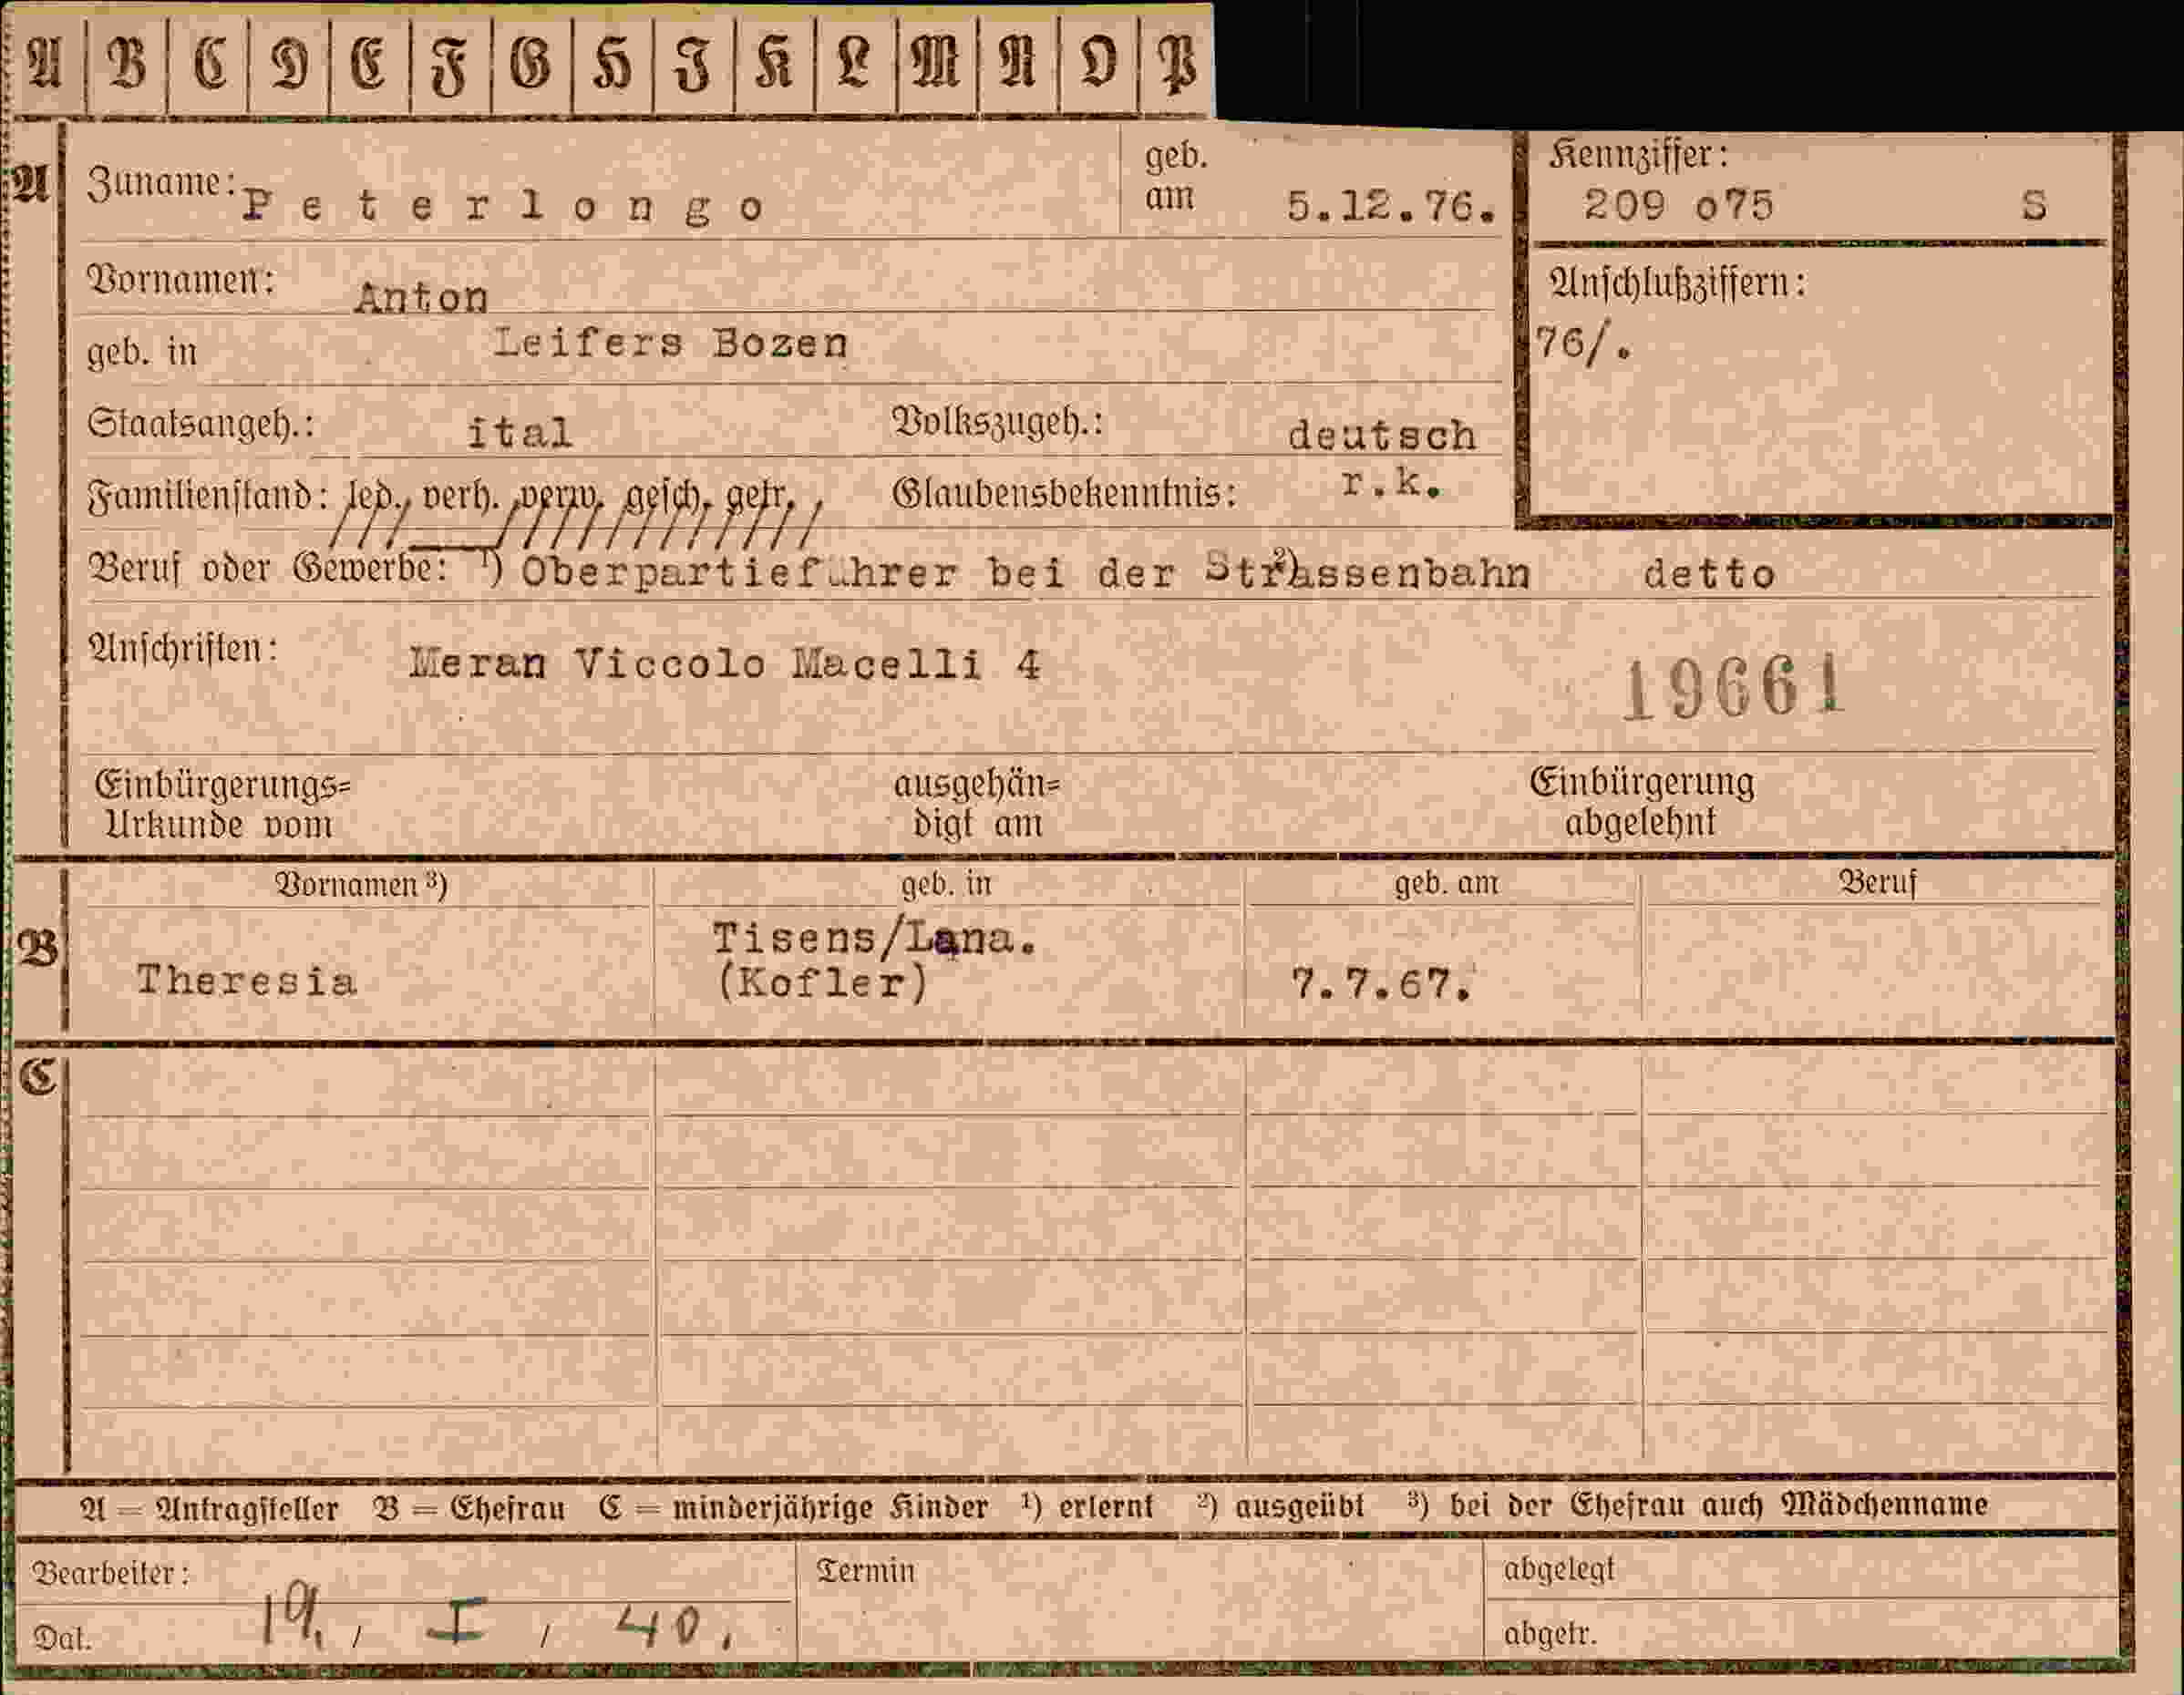 A B C D E F G H I K L M N O P
A Zuname: Peterlongo geb. am 5.12.76. Kennziffer: 209 o75 S
Vornamen: Anton Anschlußziffern:
geb. in Leifers Bozen 76/.
Staatsangeh.: ital Volkszugeh.: deutsch
Familienstand: led., verh. verw. gesch. getr. Glaubensbekenntnis: r.k.
Beruf oder Gewerbe: ¹) Oberpartieführer bei der Strassenbahn ²) detto
Anschriften: Meran Viccolo Macelli 4 19661
Einbürgerungs= ausgehän= Einbürgerung
Urkunde vom digt am abgelehnt
Vornamen ³) geb. in geb. am Beruf
B Tisens/Lana.
Theresia (Kofler) 7.7.67.
C
A = Antragsteller B = Ehefrau C = minderjährige Kinder ¹) erlernt ²) ausgeübt ³) bei der Ehefrau auch Mädchenname
Bearbeiter: Termin abgelegt
Dat. 19. / I / 40. abgetr.